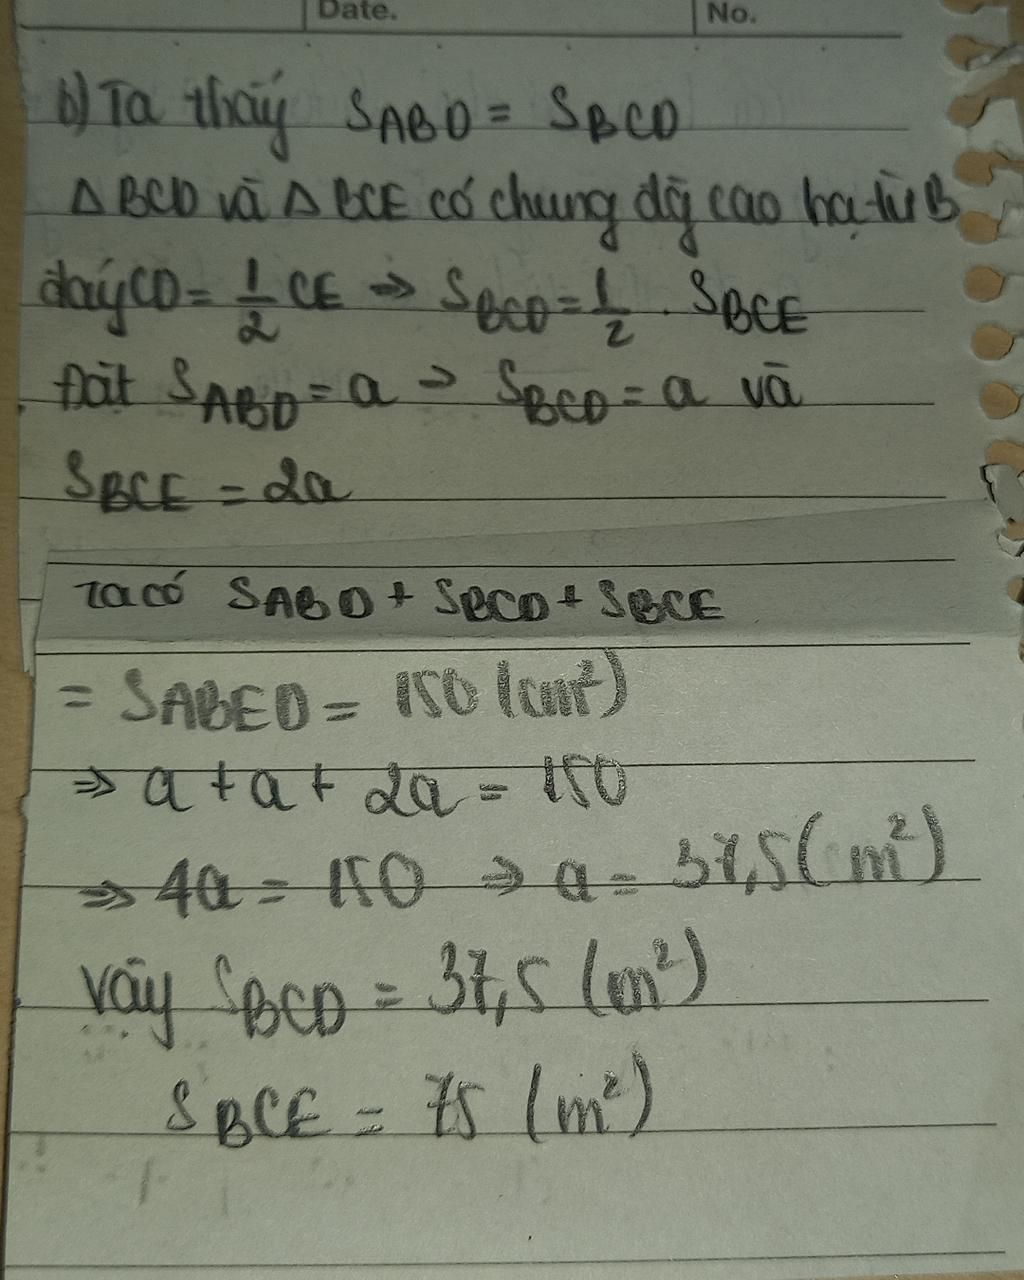 Date. No.
b) Ta thấy SABD = SBCD
Δ BCD và Δ BCE có chung đg cao hạ từ B
đáy CD = 1/2 CE => SBCD = 1/2 . SBCE
Đặt SABD = a => SBCD = a và
SBCE = 2a
Ta có SABD + SBCD + SBCE
= SABED = 150 (cm²)
=> a + a + 2a = 150
=> 4a = 150 => a = 37,5 (m²)
Vậy SBCD = 37,5 (m²)
SBCE = 75 (m²)